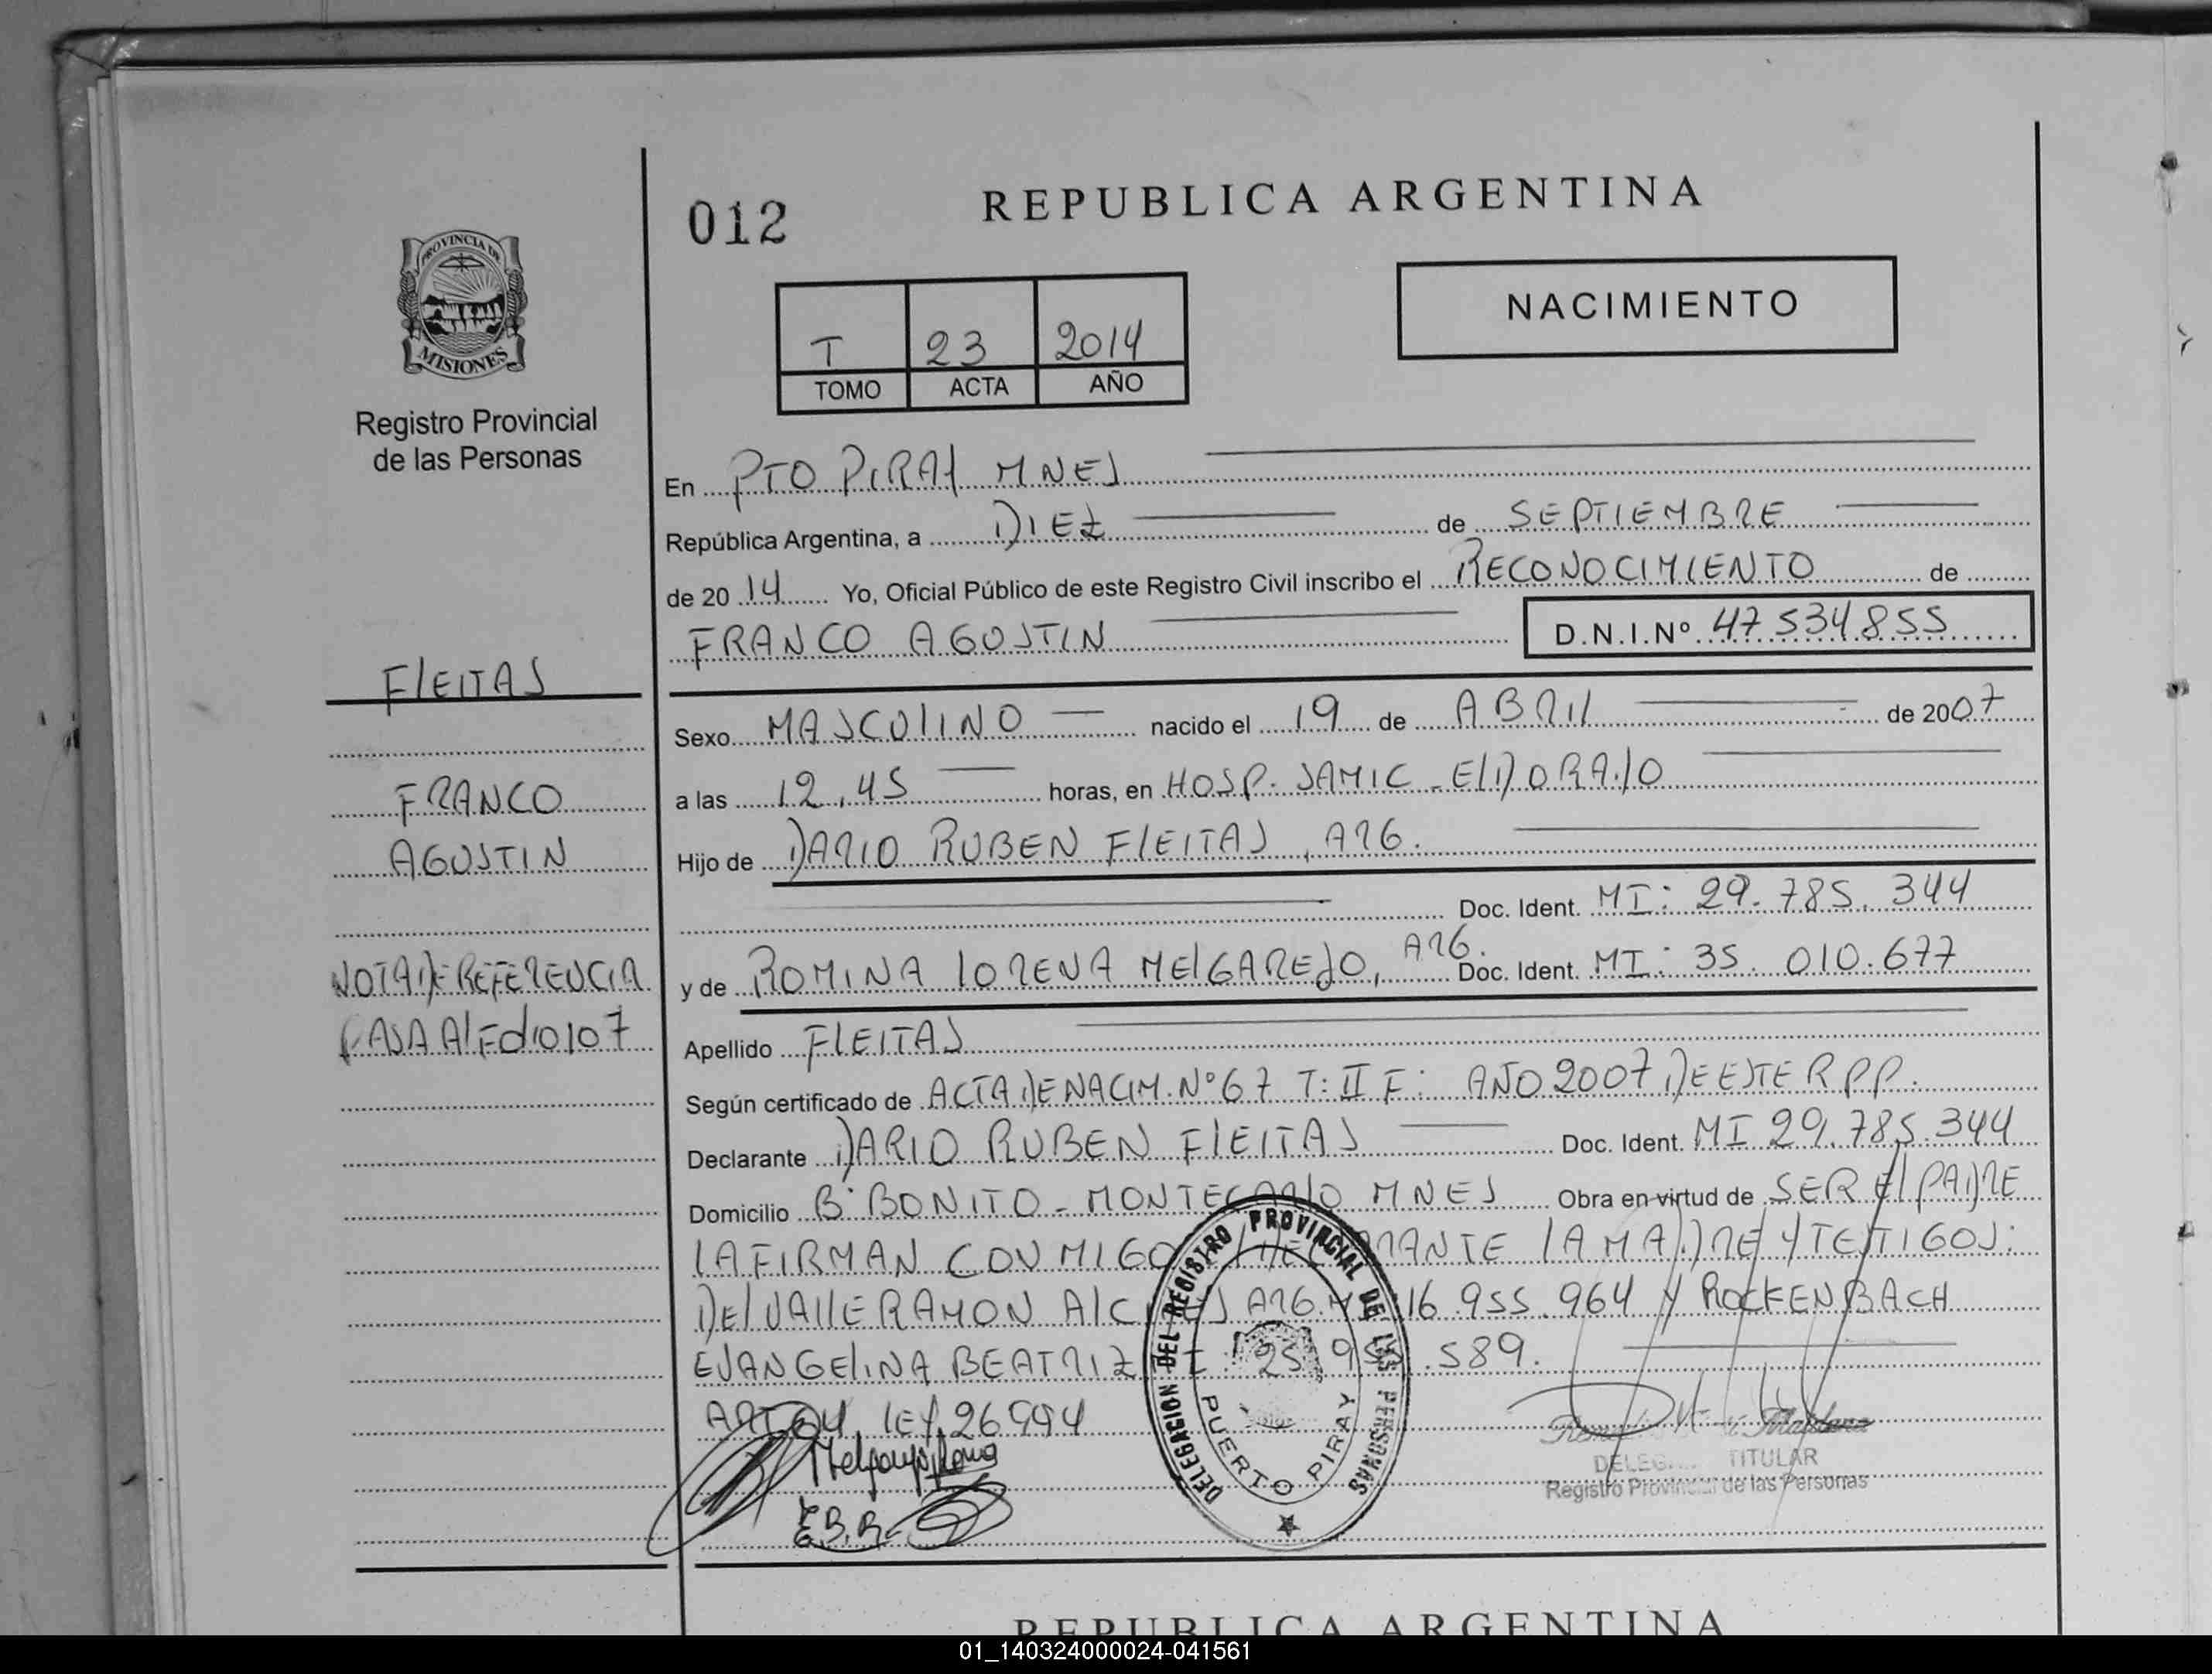 012
REPUBLICA ARGENTINA
PROVINCIA DE
MISIONES
Registro Provincial
de las Personas
NACIMIENTO
T 23 2014
TOMO ACTA AÑO
En PTO PIRAY MNES
República Argentina, a DIEZ de SEPTIEMBRE
de 2014 Yo, Oficial Público de este Registro Civil inscribo el RECONOCIMIENTO de
FRANCO AGUSTIN D.N.I.Nº 47534855
FLEITAS
FRANCO
AGUSTIN
NOTA DE REFERENCIA
Sexo MASCULINO nacido el 19 de ABRIL de 2007
a las 12,45 horas, en HOSP. SAMIC - ELDORADO
Hijo de DARIO RUBEN FLEITAS, ARG.
Doc. Ident. MI: 29.785.344
y de ROMINA LORENA MELGAREJO, ARG. Doc. Ident. MI: 35.010.677
Apellido FLEITAS
Según certificado de ACTA DE NACIM. Nº 67 T: II F: AÑO 2007 DE ESTE R.P.P.
Declarante DARIO RUBEN FLEITAS Doc. Ident. MI 29.785.344
Domicilio Bº BONITO - MONTECARLO MNES Obra en virtud de SER EL PADRE
LA FIRMAN CONMIGO LA MADRE Y TESTIGOS:
DEL VALLE RAMON ARG. 16.955.964 Y ROCKENBACH
EVANGELINA BEATRIZ 589.
LEY 26994
E.B.R.
DELEGACION DEL REGISTRO PROVINCIAL DE LAS PERSONAS
PUERTO PIRAY
TITULAR
Registro Provincial de las Personas
REPUBLICA ARGENTINA
01_140324000024-041561